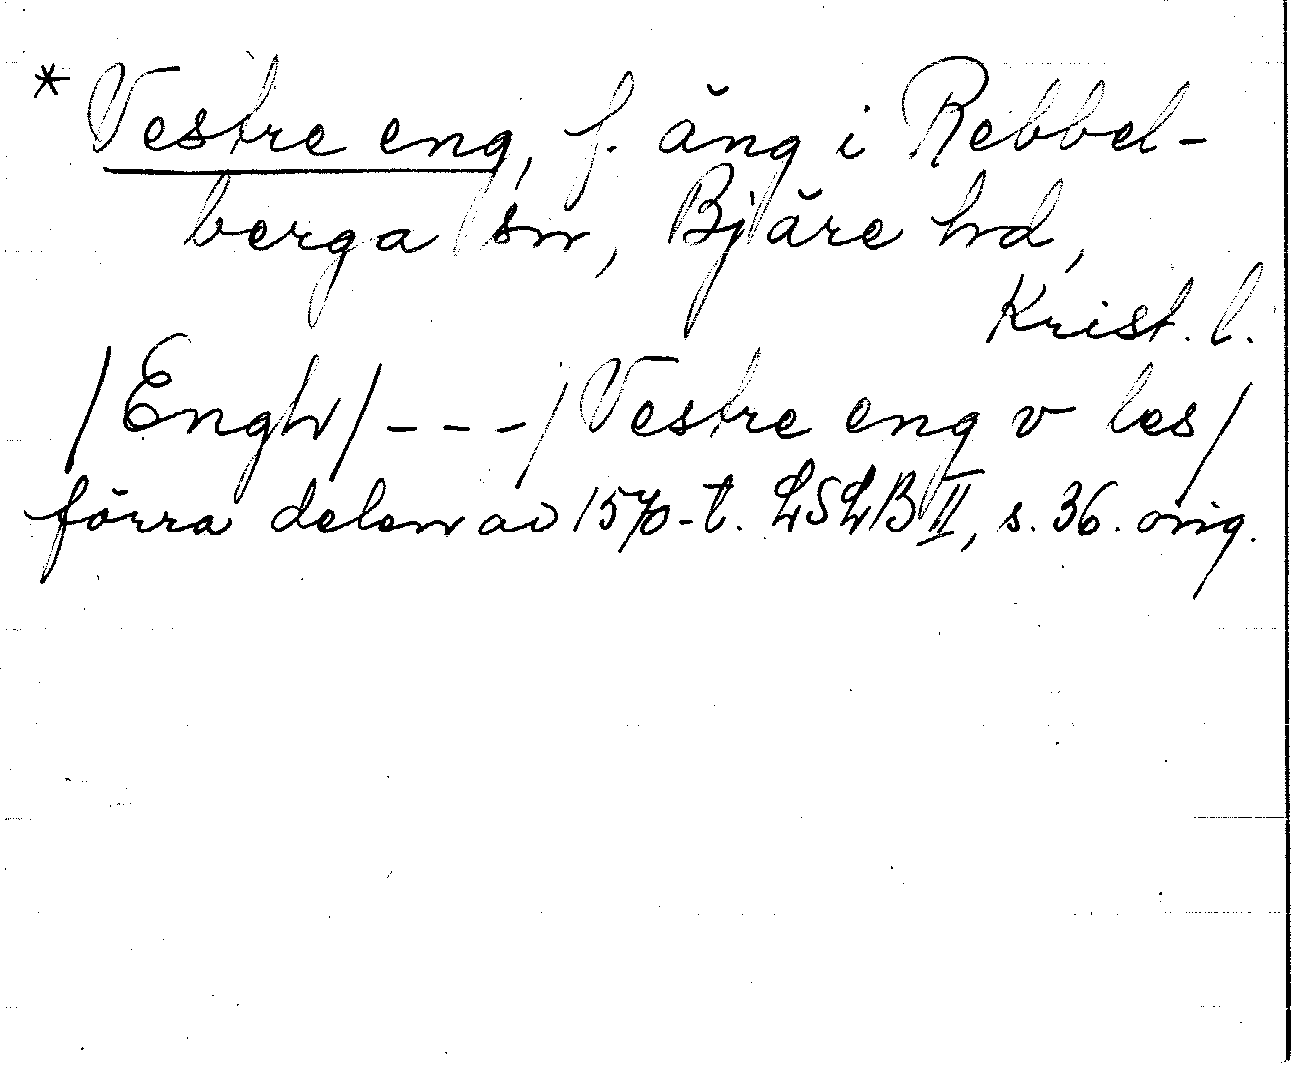 * Vestre eng, f. äng i Rebbel-
berga sn, Bjäre hd,
Krist. l.
/Engh/ - - - /Vestre eng v les/
förra delen av 1570-t. LSLB II, s. 36. orig.